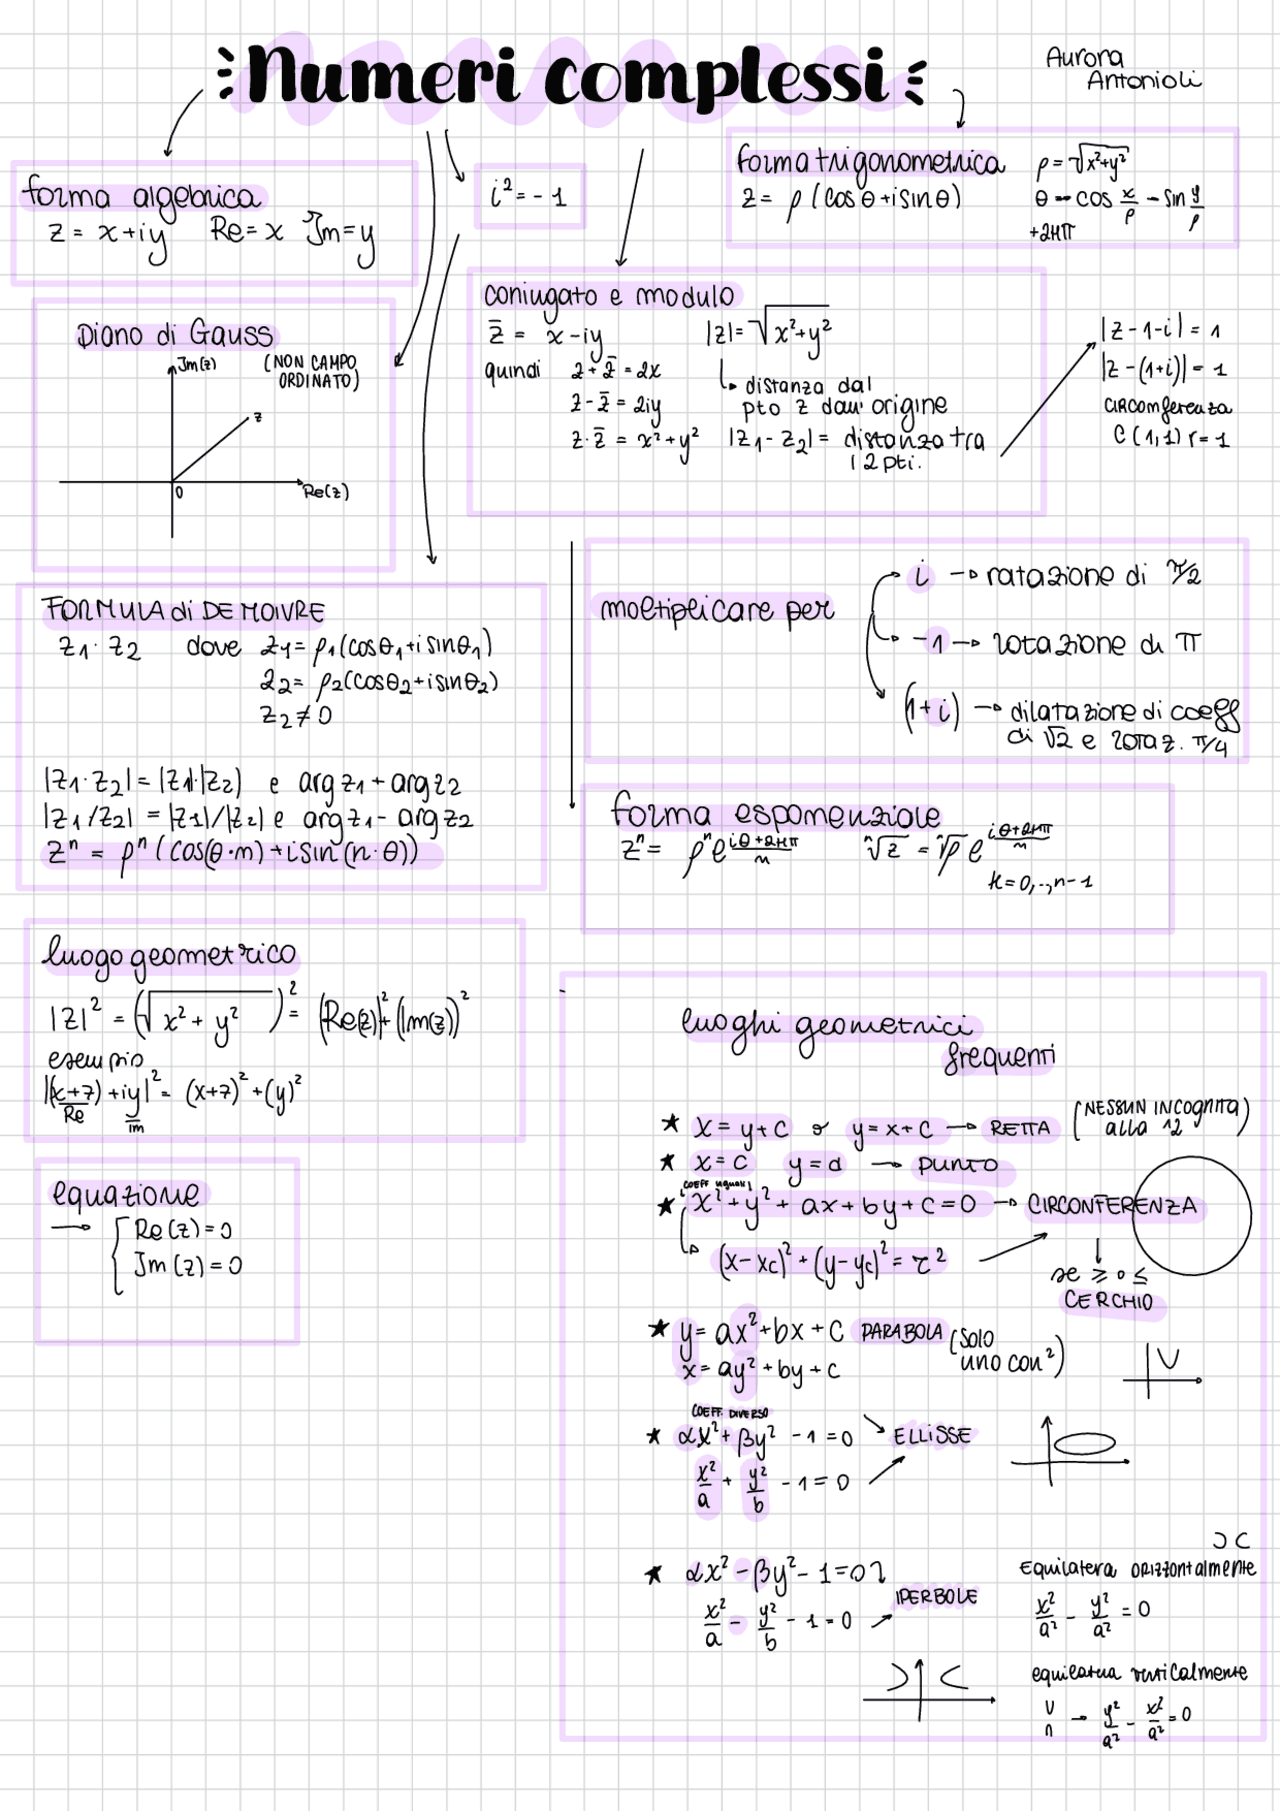 Numeri complessi
Aurora
Antonioli
forma algebrica
z = x+iy   Re=x   Im=y
i² = -1
forma trigonometrica
z = ρ(cosθ+isinθ)
ρ=√x²+y²
θ → cos x/ρ - sin y/ρ
+2kπ
Piano di Gauss
(NON CAMPO
ORDINATO)
Im(z)
z
0
Re(z)
coniugato e modulo
z̄ = x-iy
|z|=√x²+y²
quindi   z+z̄ = 2x
z-z̄ = 2iy
z·z̄ = x²+y²
↳ distanza dal
pto z dall'origine
|z₁-z₂| = distanza tra
i 2 pti.
|z-1-i| = 1
|z-(1+i)| = 1
circonferenza
C(1,1) r=1
FORMULA di DE MOIVRE
z₁·z₂   dove   z₁=ρ₁(cosθ₁+isinθ₁)
z₂=ρ₂(cosθ₂+isinθ₂)
z₂≠0
|z₁·z₂|=|z₁|·|z₂)   e   arg z₁+arg z2
|z₁/z₂| = |z₁|/|z₂| e   arg z₁- arg z2
zⁿ = ρⁿ(cos(θ·n)+isin(n·θ))
moltiplicare per
i → rotazione di π/2
-1 → rotazione di π
(1+i) → dilatazione di coeff
di √2 e rotaz. π/4
forma esponenziale
zⁿ = ρⁿe^(iθ+2kπ/n)   ⁿ√z = ⁿ√ρ e^(iθ+2kπ/n)
k=0,..,n-1
luogo geometrico
|z|² = (√x²+y²)² = (Re(z))²+(Im(z))²
esempio
|(x+7)+iy|² = (x+7)²+(y)²
Re   im
equazione
→ { Re(z)=0
Im(z)=0
luoghi geometrici
frequenti
★ x=y+c   o   y=x+c → RETTA   (NESSUN INCOGNITA
alla 12)
★ x=c   y=d → punto
COEFF uguali
★ x²+y²+ax+by+c=0 → CIRCONFERENZA
↳ (x-xc)²+(y-yc)²=r²
se ≥ 0 ≤
CERCHIO
★ y=ax²+bx+c   PARABOLA (SOLO
uno con ²)
x=ay²+by+c
COEFF. DIVERSO
★ αx²+βy²-1=0   ELLISSE
x²/a + y²/b -1=0
★ αx²-βy²-1=0   IPERBOLE
x²/a - y²/b -1=0
Equilatera orizzontalmente
x²/a² - y²/a² = 0
equilatera verticalmente
→ y²/a² - x²/a² = 0